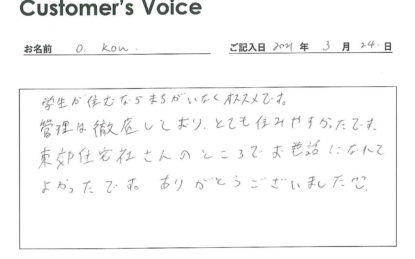 Customer's Voice
お名前 O. kou. ご記入日 2021 年 3 月 24 日
学生が住むならまちがいなくオススメです。
管理は徹底しており、とても住みやすかったです。
東郊住宅社さんのところでお世話になれて
よかったです。ありがとうございました